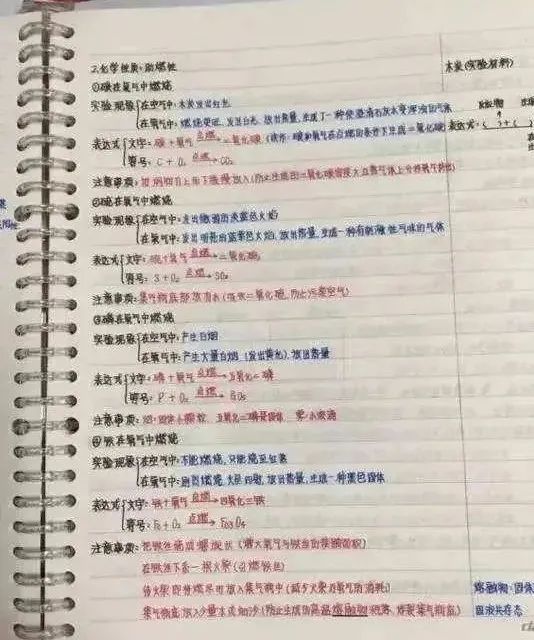 2.化学性质:助燃性
木炭(实验材料)
①碳在氧气中燃烧
实验现象 在空气中:木炭发出红光
在氧气中:燃烧更旺,发出白光,放出热量,生成了一种使澄清石灰水变浑浊的气体
表达式 文字:碳+氧气 点燃→ 二氧化碳(读作:碳和氧气在点燃的条件下生成二氧化碳) 表达式:( )+(
符号:C+O₂ 点燃→ CO₂
注意事项:
②硫在氧气中燃烧
实验现象 在空气中:发出微弱的淡蓝色火焰
在氧气中:发出明亮的蓝紫色火焰,放出热量,生成一种有刺激性气味的气体
表达式 文字:硫+氧气 点燃→ 二氧化硫
符号:S+O₂ 点燃→ SO₂
注意事项:集气瓶底部放清水(吸收二氧化硫,防止污染空气)
③磷在氧气中燃烧
实验现象 在空气中:产生白烟
在氧气中:产生大量白烟(发出黄光),放出热量
表达式 文字:磷+氧气 点燃→ 五氧化二磷
符号:P+O₂ 点燃→ P₂O₅
注意事项:烟:固体小颗粒 五氧化二磷是固体 雾:小液滴
④铁在氧气中燃烧
实验现象 在空气中:不能燃烧,只能烧至红热
在氧气中:剧烈燃烧,火星四射,放出热量,生成一种黑色固体
表达式 文字:铁+氧气 点燃→ 四氧化三铁
符号:Fe+O₂ 点燃→ Fe₃O₄
注意事项:把铁丝绕成螺旋状(增大氧气与铁丝的接触面积)
在铁丝下系一根火柴(引燃铁丝)
待火柴即将燃尽时放入集气瓶中(减少火柴对氧气的消耗) 熔融物:固体
集气瓶底放入少量水或细沙(防止生成的高温熔融物溅落,炸裂集气瓶底) 固液共存态